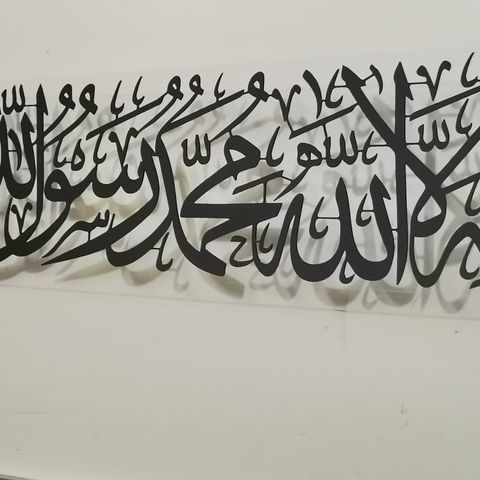 ـهَ إِلَّا اللّٰهُ مُحَمَّدٌ رَسُولُ اللّٰه